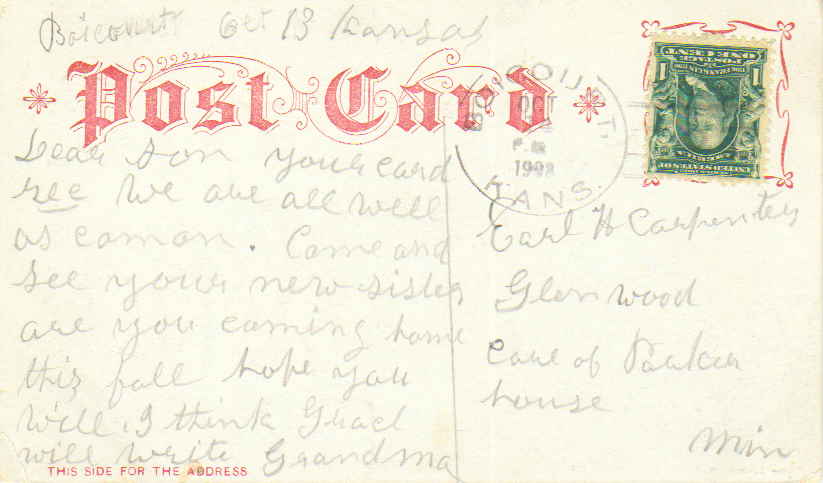 Boicourt Oct 13 Kansas
Post Card
BOICOURT,
OCT
P.M.
1908
KANS.
ONE CENT
POSTAGE
1 1
Dear Son your card
rec We are all well
as coman. Come and
See your new sister
are you coming home
this fall hope you
Will. I think Gracl
will write Grandma
THIS SIDE FOR THE ADDRESS
Earl H Carpenter
Glenwood
Care of Parker
house
Min